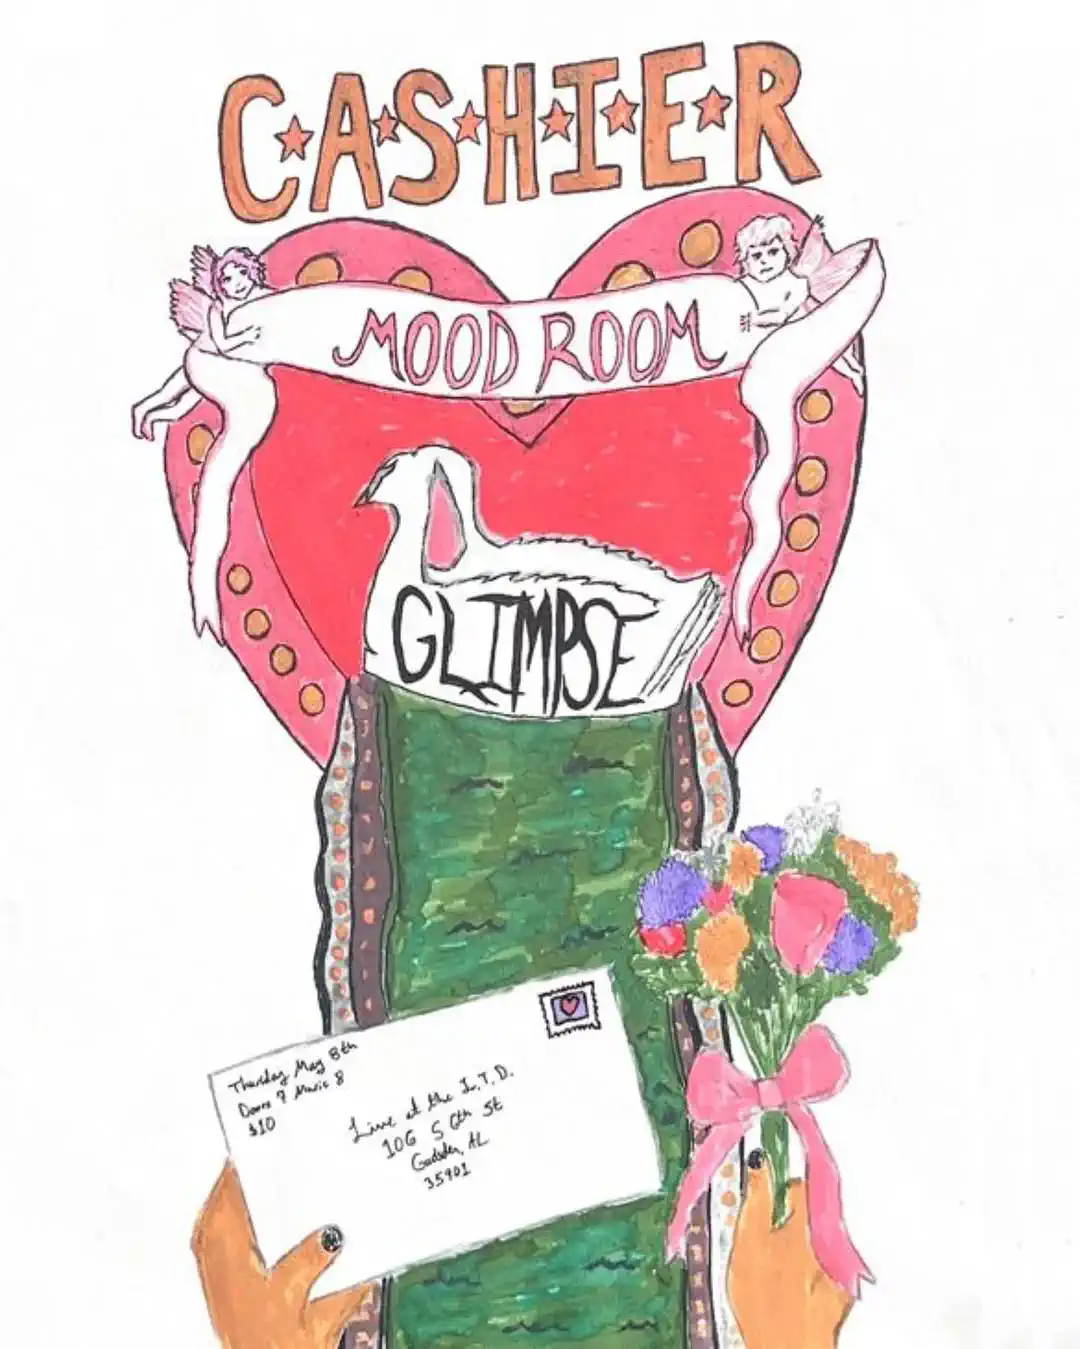 CASHIER
MOOD ROOM
GLIMPSE
Thursday May 8th
Doors 7 Music 8
$10
Live at the L.T.D.
106 S 6th St
Gadsden, AL
35901